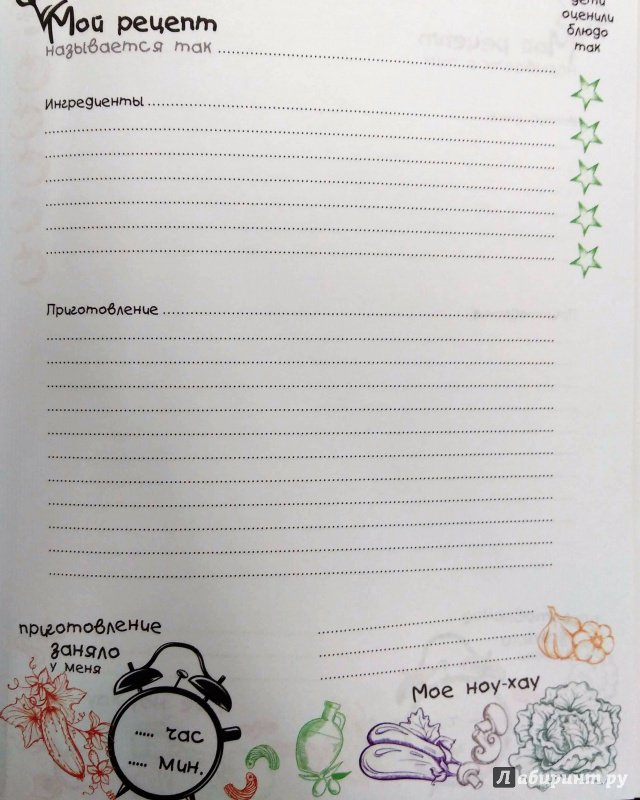 Мой рецепт
называется так
дети
оценили
блюдо
так
Ингредиенты
Приготовление
приготовление
заняло
у меня
..... час
..... мин.
Мое ноу-хау
Лабиринт.ру